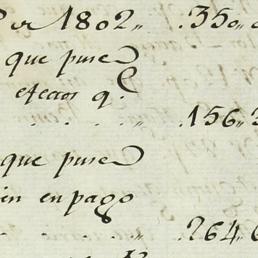 Por 1802,, .350,
que puse
efectos q.e
. . . . .156,,3
que puse
en en pago
. . . . .264,6